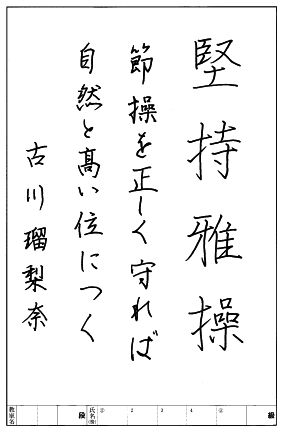 堅持雅操
節操を正しく守れば
自然と高い位につく
古川瑠梨奈
級
段
氏名
教室名